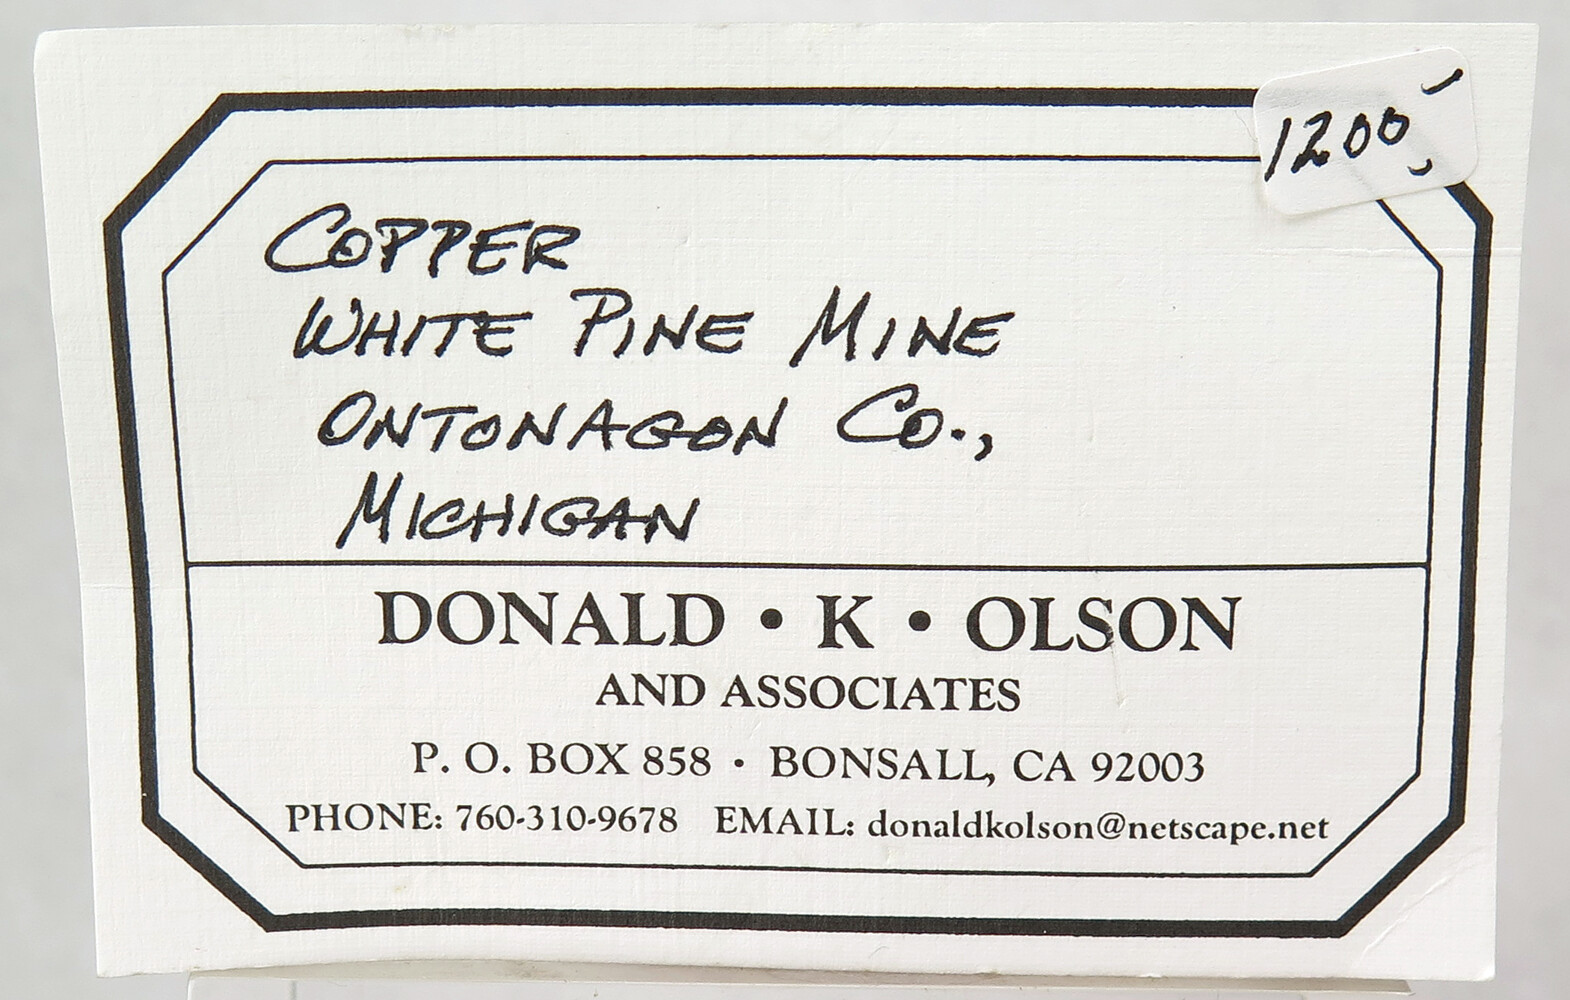 1200,-
COPPER
WHITE PINE MINE
ONTONAGON CO.,
MICHIGAN
DONALD • K • OLSON
AND ASSOCIATES
P. O. BOX 858 • BONSALL, CA 92003
PHONE: 760-310-9678 EMAIL: donaldkolson@netscape.net